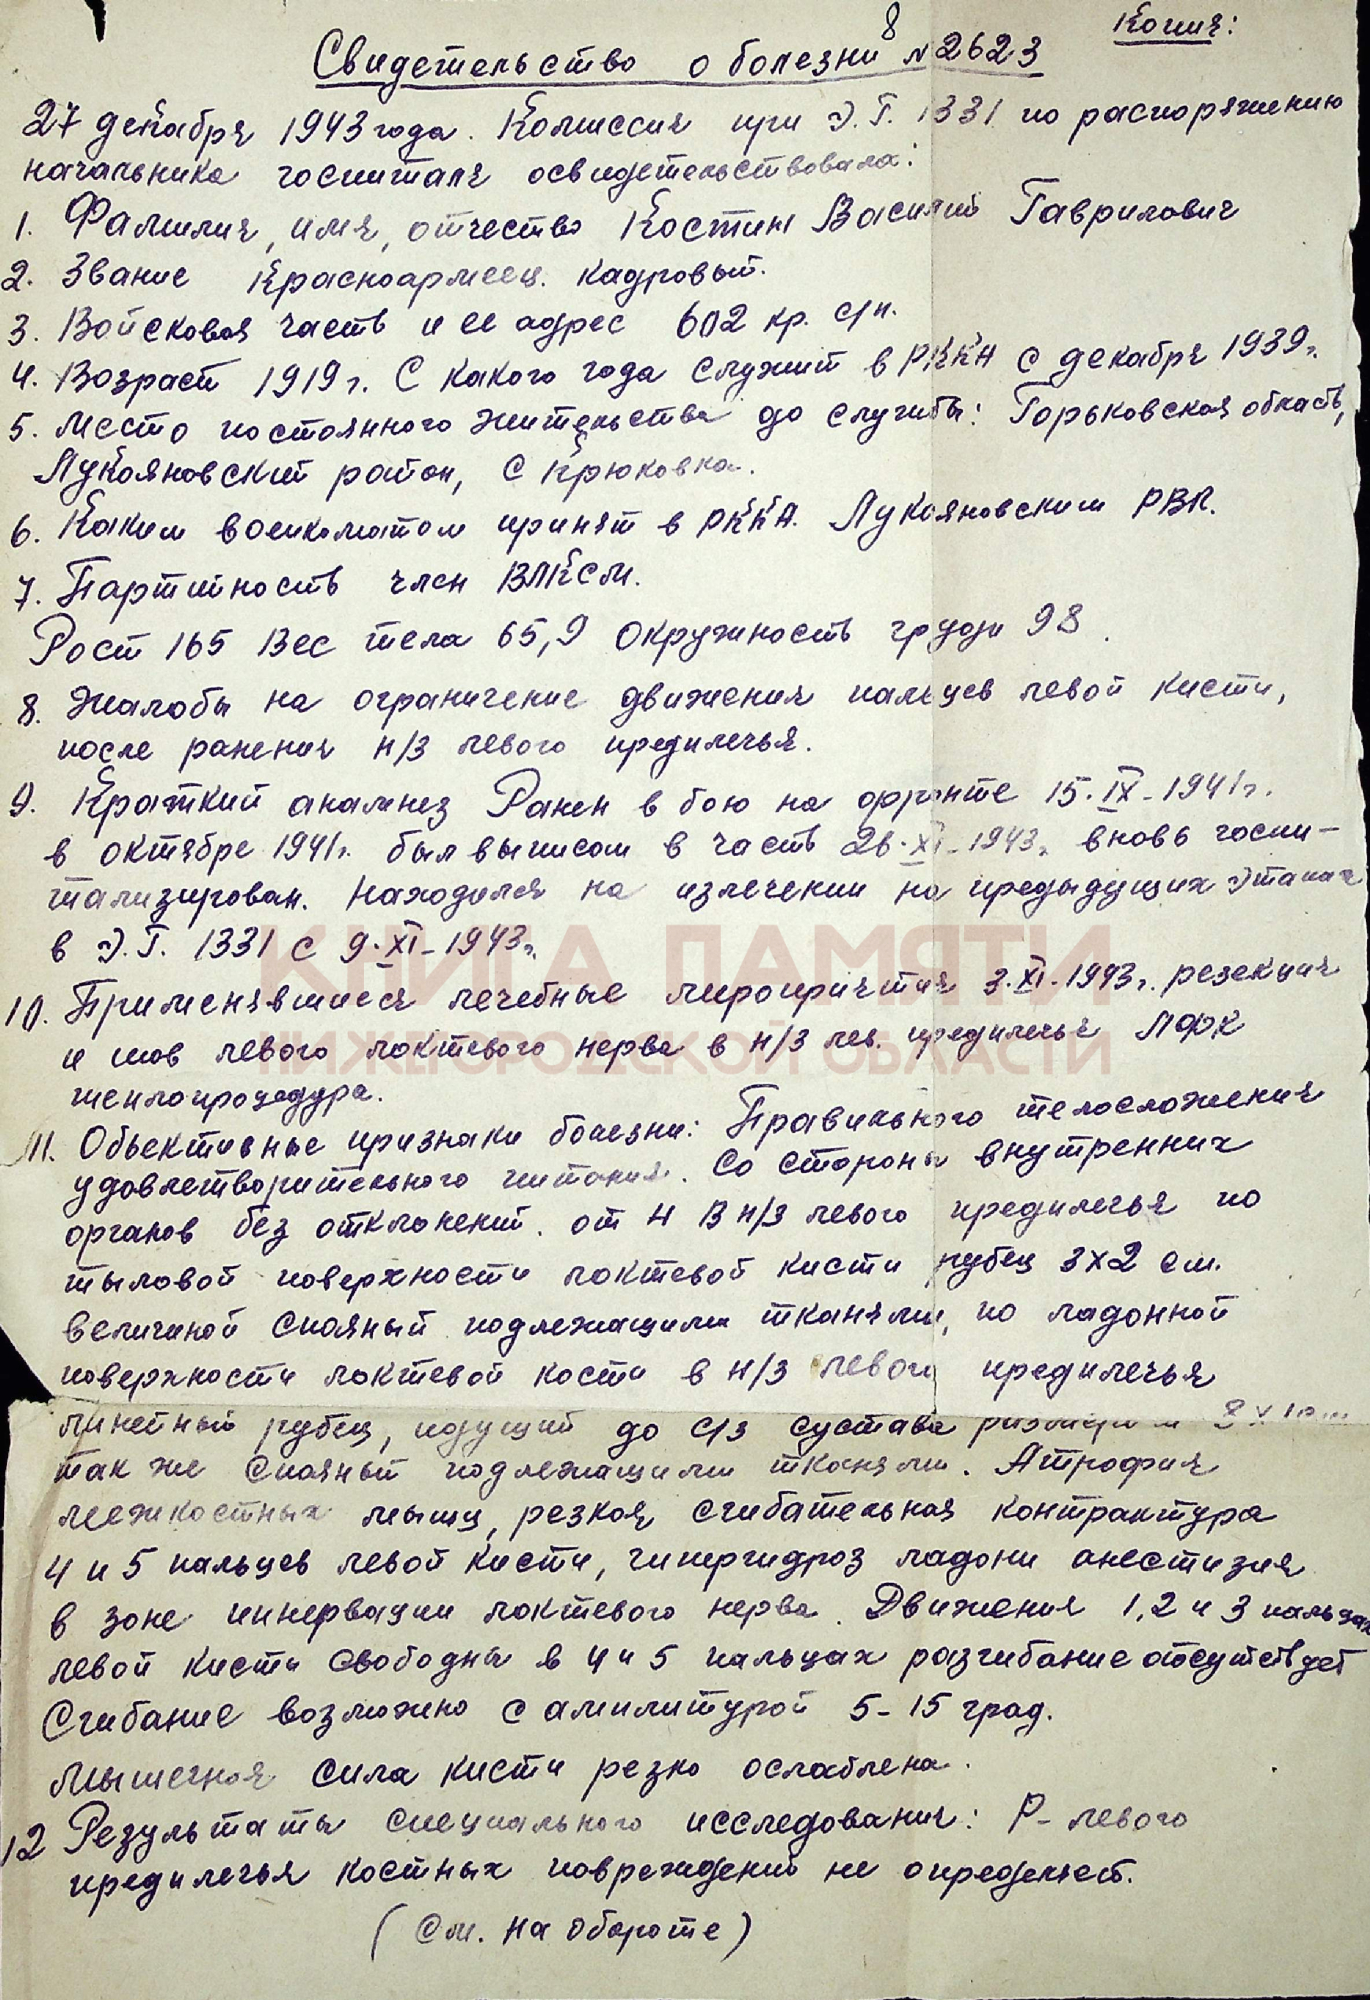 Копия:
8
Свидетельство о болезни №2623
27 декабря 1943 года. Комиссия при Э.Г. 1331 по распоряжению
начальника госпиталя освидетельствовала:
1. Фамилия, имя, отчество Костин Василий Гаврилович
2. Звание Красноармеец. кадровый.
3. Войсковая часть и ее адрес 602 кр. с/п.
4. Возраст 1919 г. С какого года служит в РККА с декабря 1939 г.
5. Место постоянного жительства до службы: Горьковская область,
Лукояновский район, с Крюковка.
6. Каким военкоматом принят в РККА. Лукояновским РВК.
7. Партийность член ВЛКСМ.
Рост 165 Вес тела 65,9 Окружность груди 98.
8. Жалобы на ограничение движения пальцев левой кисти,
после ранения н/з левого предплечья.
9. Краткий анамнез Ранен в бою на фронте 15.IX-1941г.
в октябре 1941г. был выписан в часть 26.XI-1943г. вновь госпи-
тализирован. Находился на излечении на предыдущих этапах
в Э.Г. 1331 с 9.XI-1943г.
КНИГА ПАМЯТИ
НИЖЕГОРОДСКОЙ ОБЛАСТИ
10. Применявшиеся лечебные мероприятия 3.XI.1943г. резекция
и шов левого локтевого нерва в н/з лев. предплечья ЛФК
теплопроцедура.
11. Объективные признаки болезни: Правильного телосложения
удовлетворительного питания. Со стороны внутренних
органов без отклонений. от Н В н/з левого предплечья по
тыловой поверхности локтевой кисти рубец 3х2 см.
величиной спаяный подлежащими тканями, по ладонной
поверхности локтевой кости в н/з левого предплечья
линейный рубец, идущий до с/з сустава размером
так же спаяный подлежащими тканями. Атрофия
межкостных мышц, резкая сгибательная контрактура
4 и 5 пальцев левой кисти, гипергидроз ладони анестизия
в зоне иннервации локтевого нерва. Движения 1,2 и 3 пальцах
левой кисти свободны в 4 и 5 пальцах разгибание отсутствует
Сгибание возможно с амплитурой 5-15 град.
Мышечная сила кисти резко ослаблена.
12 Результаты специального исследования: Р- левого
предплечья костных повреждений не определяет.
(см. на обороте)